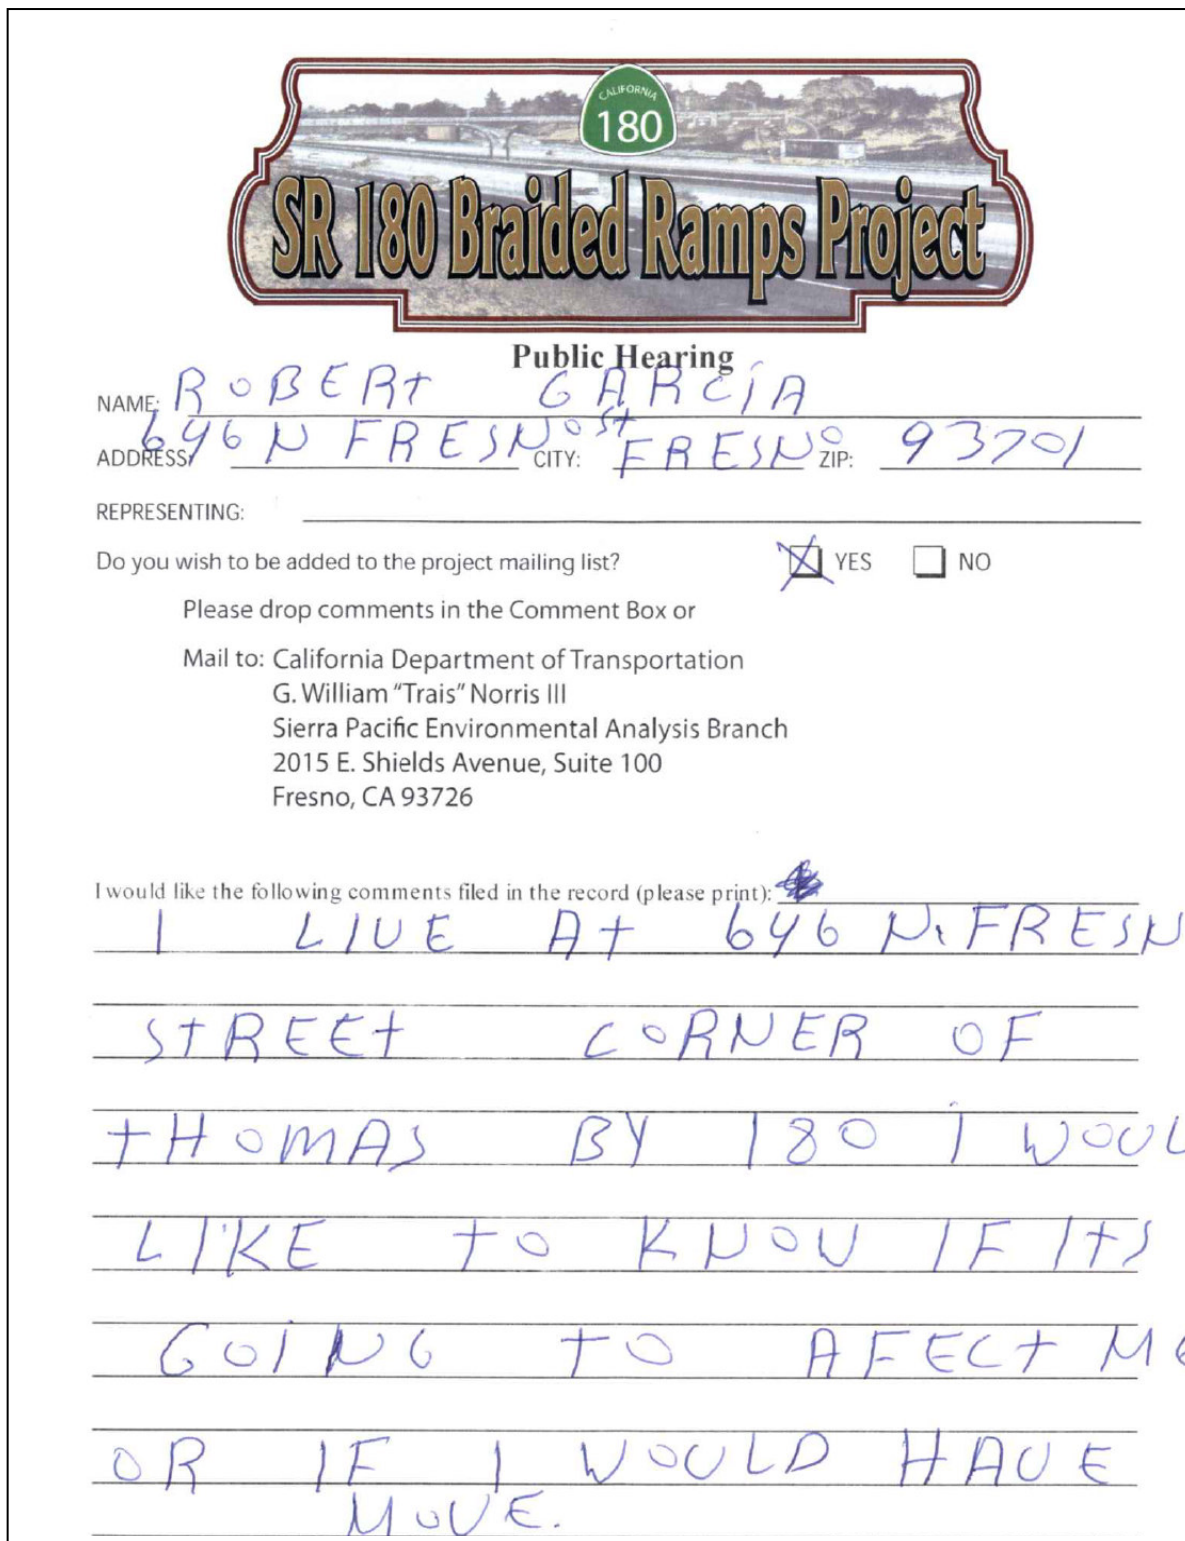 CALIFORNIA
180
SR 180 Braided Ramps Project
Public Hearing
NAME: ROBERT GARCIA
ADDRESS: 646 N FRESNO St CITY: FRESNO ZIP: 93701
REPRESENTING:
Do you wish to be added to the project mailing list? YES NO
Please drop comments in the Comment Box or
Mail to: California Department of Transportation
G. William “Trais” Norris III
Sierra Pacific Environmental Analysis Branch
2015 E. Shields Avenue, Suite 100
Fresno, CA 93726
I would like the following comments filed in the record (please print):
I LIVE At 646 N. FRESN
StREEt CORNER OF
tHOMAS BY 180 i WOUL
LIKE tO KNOW IF ItS
GOiNG tO AFECt ME
OR IF I WOULD HAVE
MOVE.